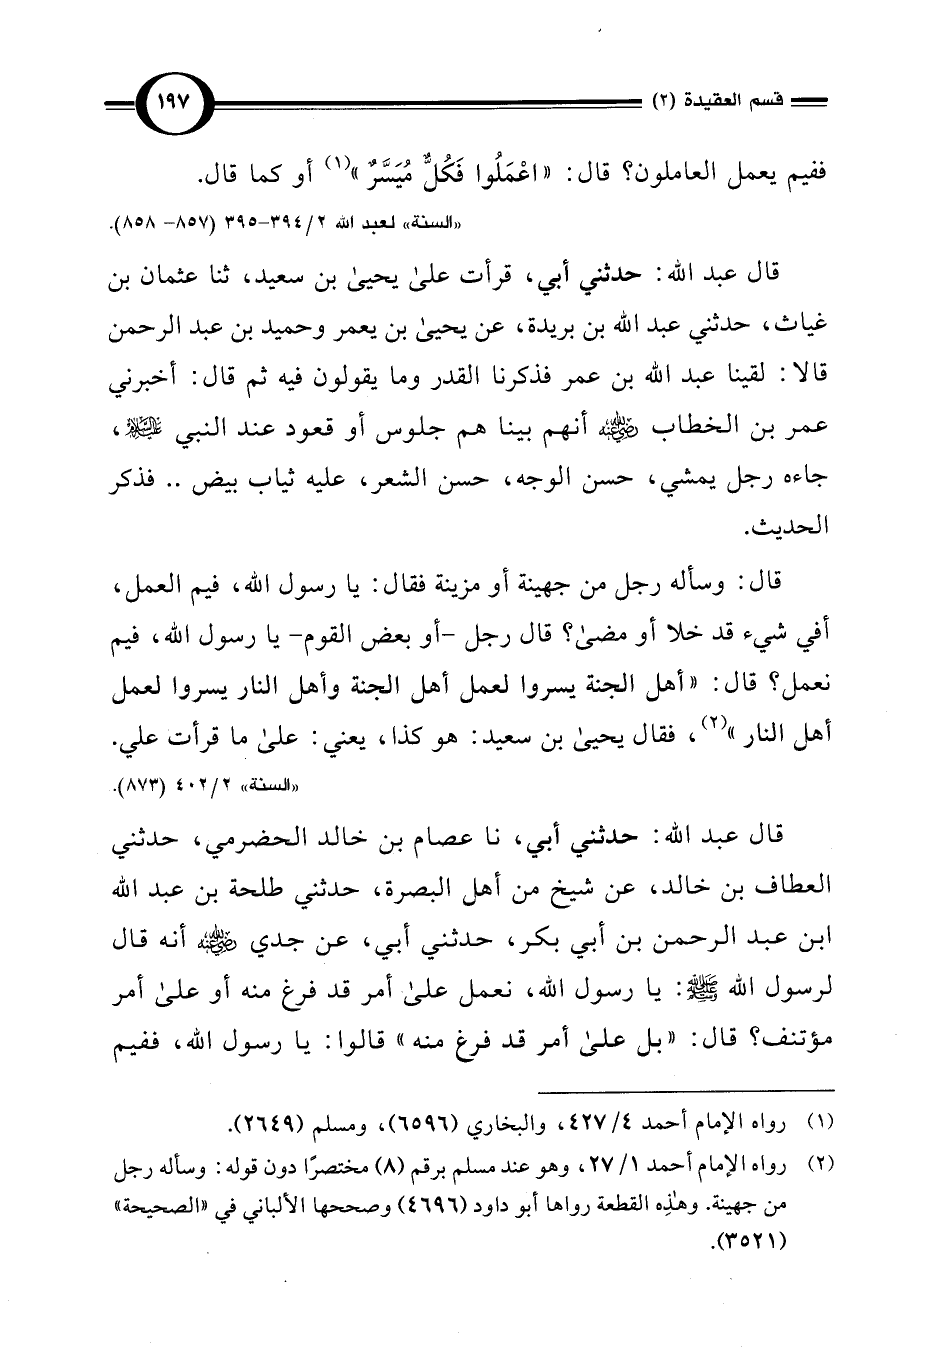 قسم العقيدة (٢) ١٩٧
ففيم يعمل العاملون؟ قال: «اعْمَلُوا فَكُلٌّ مُيَسَّرٌ»(١) أو كما قال.
«السنة» لعبد الله ٢/ ٣٩٤-٣٩٥ (٨٥٧- ٨٥٨).
قال عبد الله: حدثني أبي، قرأت علىٰ يحيىٰ بن سعيد، ثنا عثمان بن
غياث، حدثني عبد الله بن بريدة، عن يحيىٰ بن يعمر وحميد بن عبد الرحمن
قالا: لقينا عبد الله بن عمر فذكرنا القدر وما يقولون فيه ثم قال: أخبرني
عمر بن الخطاب رضي الله عنه أنهم بينا هم جلوس أو قعود عند النبي عليه السلام،
جاءه رجل يمشي، حسن الوجه، حسن الشعر، عليه ثياب بيض .. فذكر
الحديث.
قال: وسأله رجل من جهينة أو مزينة فقال: يا رسول الله، فيم العمل،
أفي شيء قد خلا أو مضىٰ؟ قال رجل -أو بعض القوم- يا رسول الله، فيم
نعمل؟ قال: «أهل الجنة يسروا لعمل أهل الجنة وأهل النار يسروا لعمل
أهل النار»(٢)، فقال يحيىٰ بن سعيد: هو كذا، يعني: علىٰ ما قرأت علي.
«السنة» ٢/ ٤٠٢ (٨٧٣).
قال عبد الله: حدثني أبي، نا عصام بن خالد الحضرمي، حدثني
العطاف بن خالد، عن شيخ من أهل البصرة، حدثني طلحة بن عبد الله
ابن عبد الرحمن بن أبي بكر، حدثني أبي، عن جدي رضي الله عنه أنه قال
لرسول الله ﷺ: يا رسول الله، نعمل علىٰ أمر قد فرغ منه أو علىٰ أمر
مؤتنف؟ قال: «بل علىٰ أمر قد فرغ منه» قالوا: يا رسول الله، ففيم
(١) رواه الإمام أحمد ٤/ ٤٢٧، والبخاري (٦٥٩٦)، ومسلم (٢٦٤٩).
(٢) رواه الإمام أحمد ١/ ٢٧، وهو عند مسلم برقم (٨) مختصرًا دون قوله: وسأله رجل
من جهينة. وهذِه القطعة رواها أبو داود (٤٦٩٦) وصححها الألباني في «الصحيحة»
(٣٥٢١).